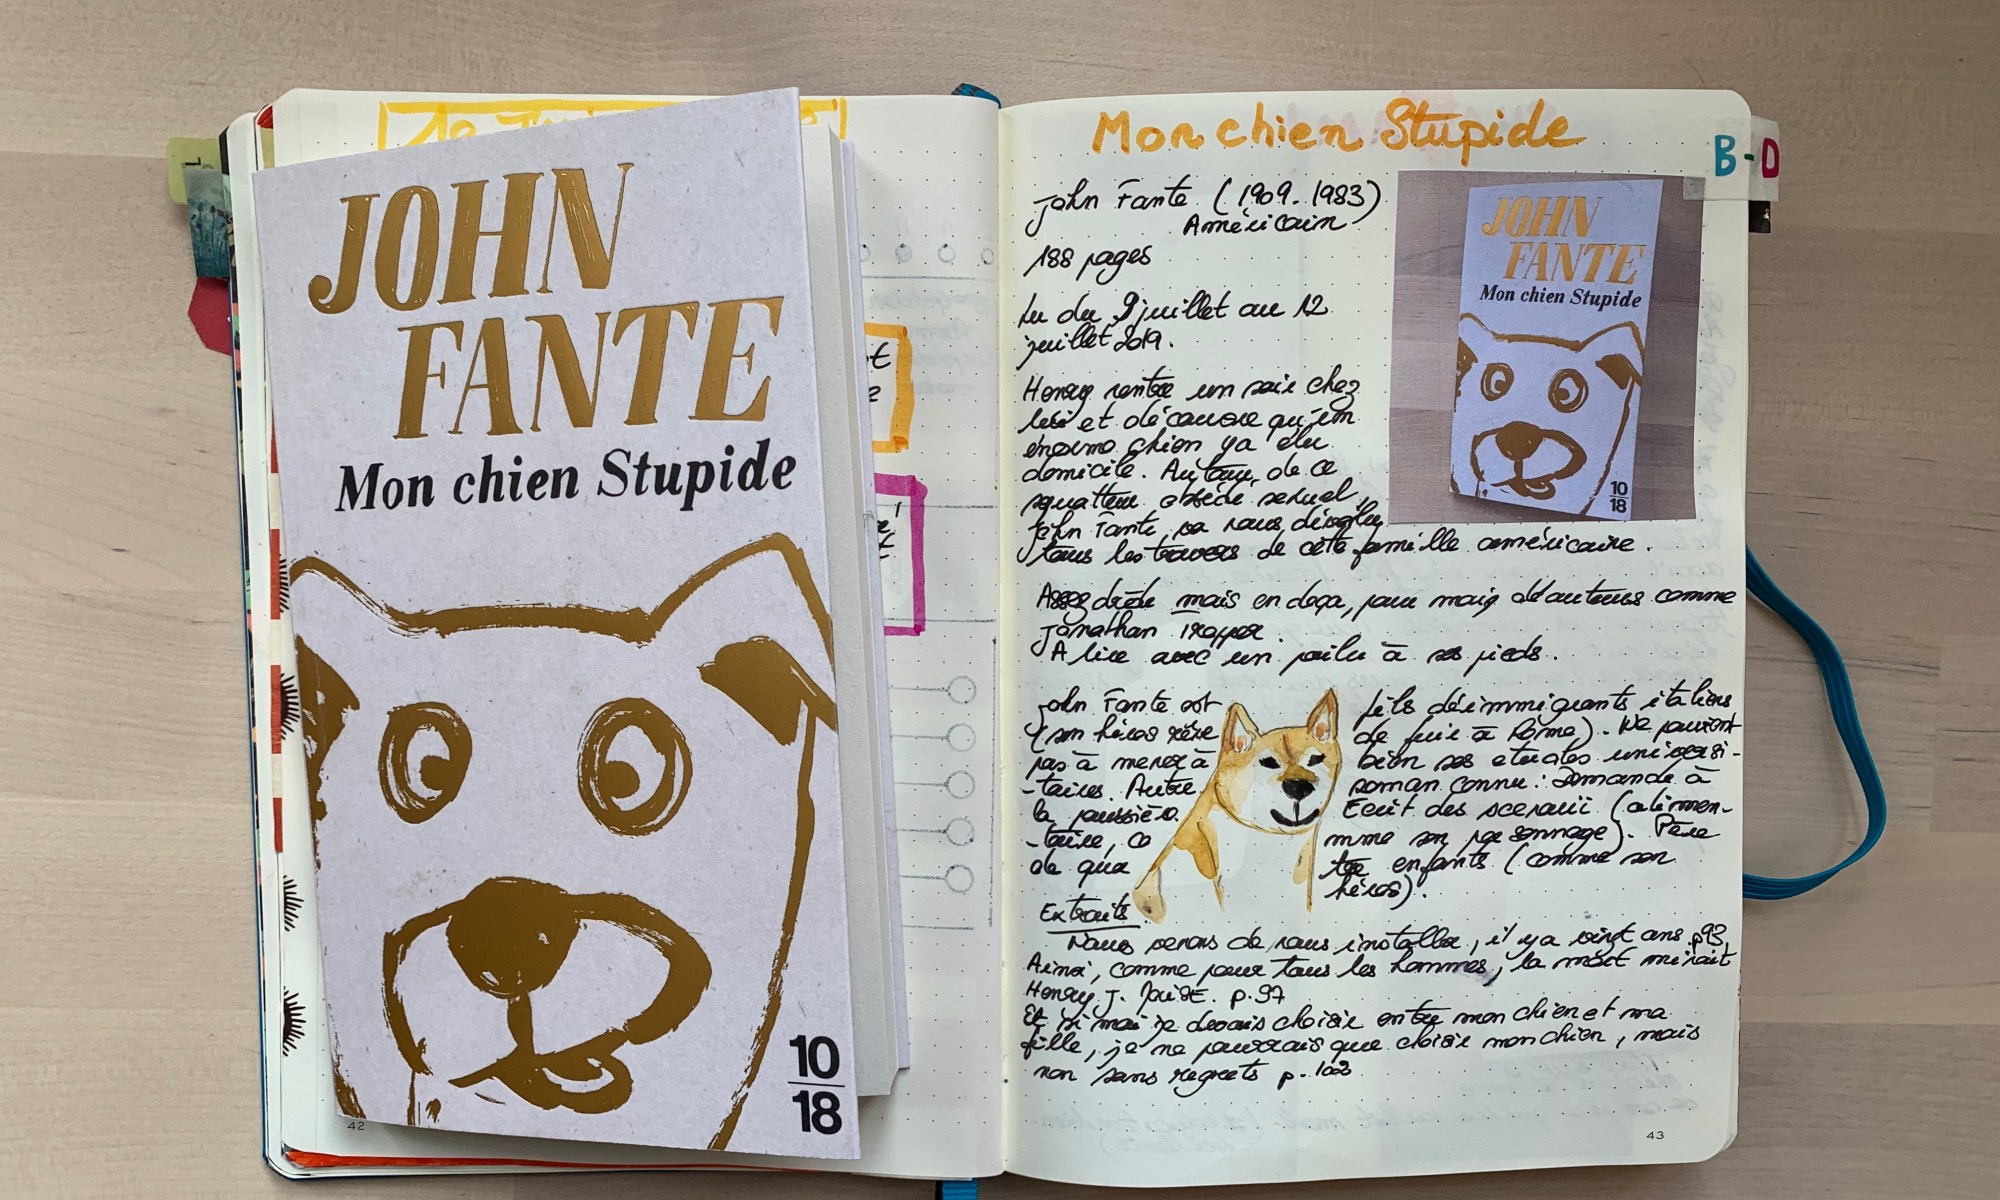 JOHN
FANTE
Mon chien Stupide
10
18
42
Mon chien Stupide
B-D
John Fante (1909.1983)
Américain
188 pages
Lu du 9 juillet au 12
juillet 2019.
JOHN
FANTE
Mon chien Stupide
10
18
Henry rentre un soir chez
lui et découvre qu'un
énorme chien y a élu
domicile. Autour de ce
squatteur obsédé sexuel,
John Fante, va nous dévoiler
tous les travers de cette famille américaine.
Assez drôle mais en deça, pour moi, d'auteurs comme
Jonathan Tropper.
A lire avec un poilu à ses pieds.
John Fante est fils d'immigrants italiens
(son héros rêve de fuir à Rome). Ne parvient
pas à mener à bien ses etudes universi-
-taires. Autre roman connu : Demande à
la poussière. Ecrit des scenarii (alimen-
-taire, comme son personnage). Père
de quatre enfants (comme son
héros).
Extraits
Nous venons de nous installer, il y a vingt ans p93
Ainsi, comme pour tous les hommes, la mort mûrait
Henry J. p.97
Et si moi je devais choisir entre mon chien et ma
fille, je ne pourrais que choisir mon chien, mais
non sans regrets p.
43